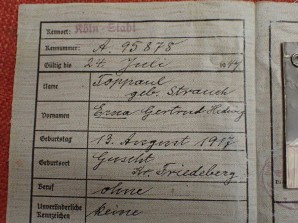 Kennort: Köln-Stadt
Kennnummer: A. 95878
Gültig bis 24. Juli
Name Toppaul
geb. Strauch
Vornamen Erna Gertrud Hedwig
Geburtstag 13. August 1917
Geburtsort Guscht
Kr. Friedeberg
Beruf ohne
Unveränderliche
Kennzeichen keine